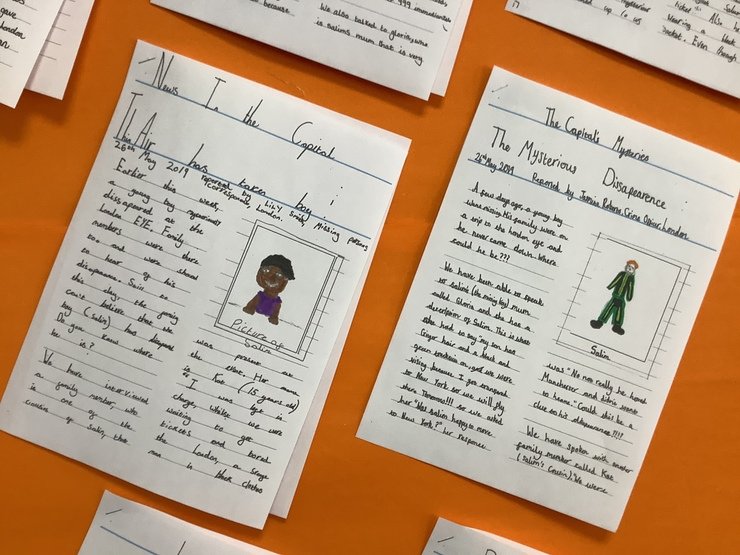 gave
London
because
We also talked to gloria, who
is salims mum that is very
999 immediately
wearing a black
jacket. Even though
News In the Capital
Thin Air has taken boy!
26th May 2019 reported by Lily Smith, Missing persons
Correspondent, London.
Earlier this week,
a young boy mysteriously
dissapeared at the
London EYE. Family
members were there
too and were shocked
to hear of his
disapearance. Still to
this day, the young
boy (Salim) has disapeared
Do you know where
he is?
We have interviewed
a family member, who
is one of the
cousins of Salim, that
Picture of
Salim
was present at
the time. Her name
is Kat (15 years old)
"I was left in
charge, whilst we were
waiting to get
tickets and bored
the London, a strange
man in black clothes
The Capital's Mysteries
The Mysterious Dissapearence
26th May 2019 Reported by Jamie Roberts, Crime Officer, London
A few days ago, a young boy
went missing. His family were on
a trip to the london eye and
he never came down. Where
could he be???
We have been able to speak
to salims (the missing boy) mum
called Gloria and she has a
description of Salim. This is what
she had to say "my son has
Ginger hair and a black and
green tracksuit on. and we were
because I got transferred
to New York so we will fly
there Tomorrow!!! so we asked
her "Was salim happy to move
to New York?" her response
Salim
was "No not really he loved
Manchester and didnt want
to leave." Could this be a
clue on his dissapearance????
We have spoken with another
family member called Kat
(salim's Cousin). "We were